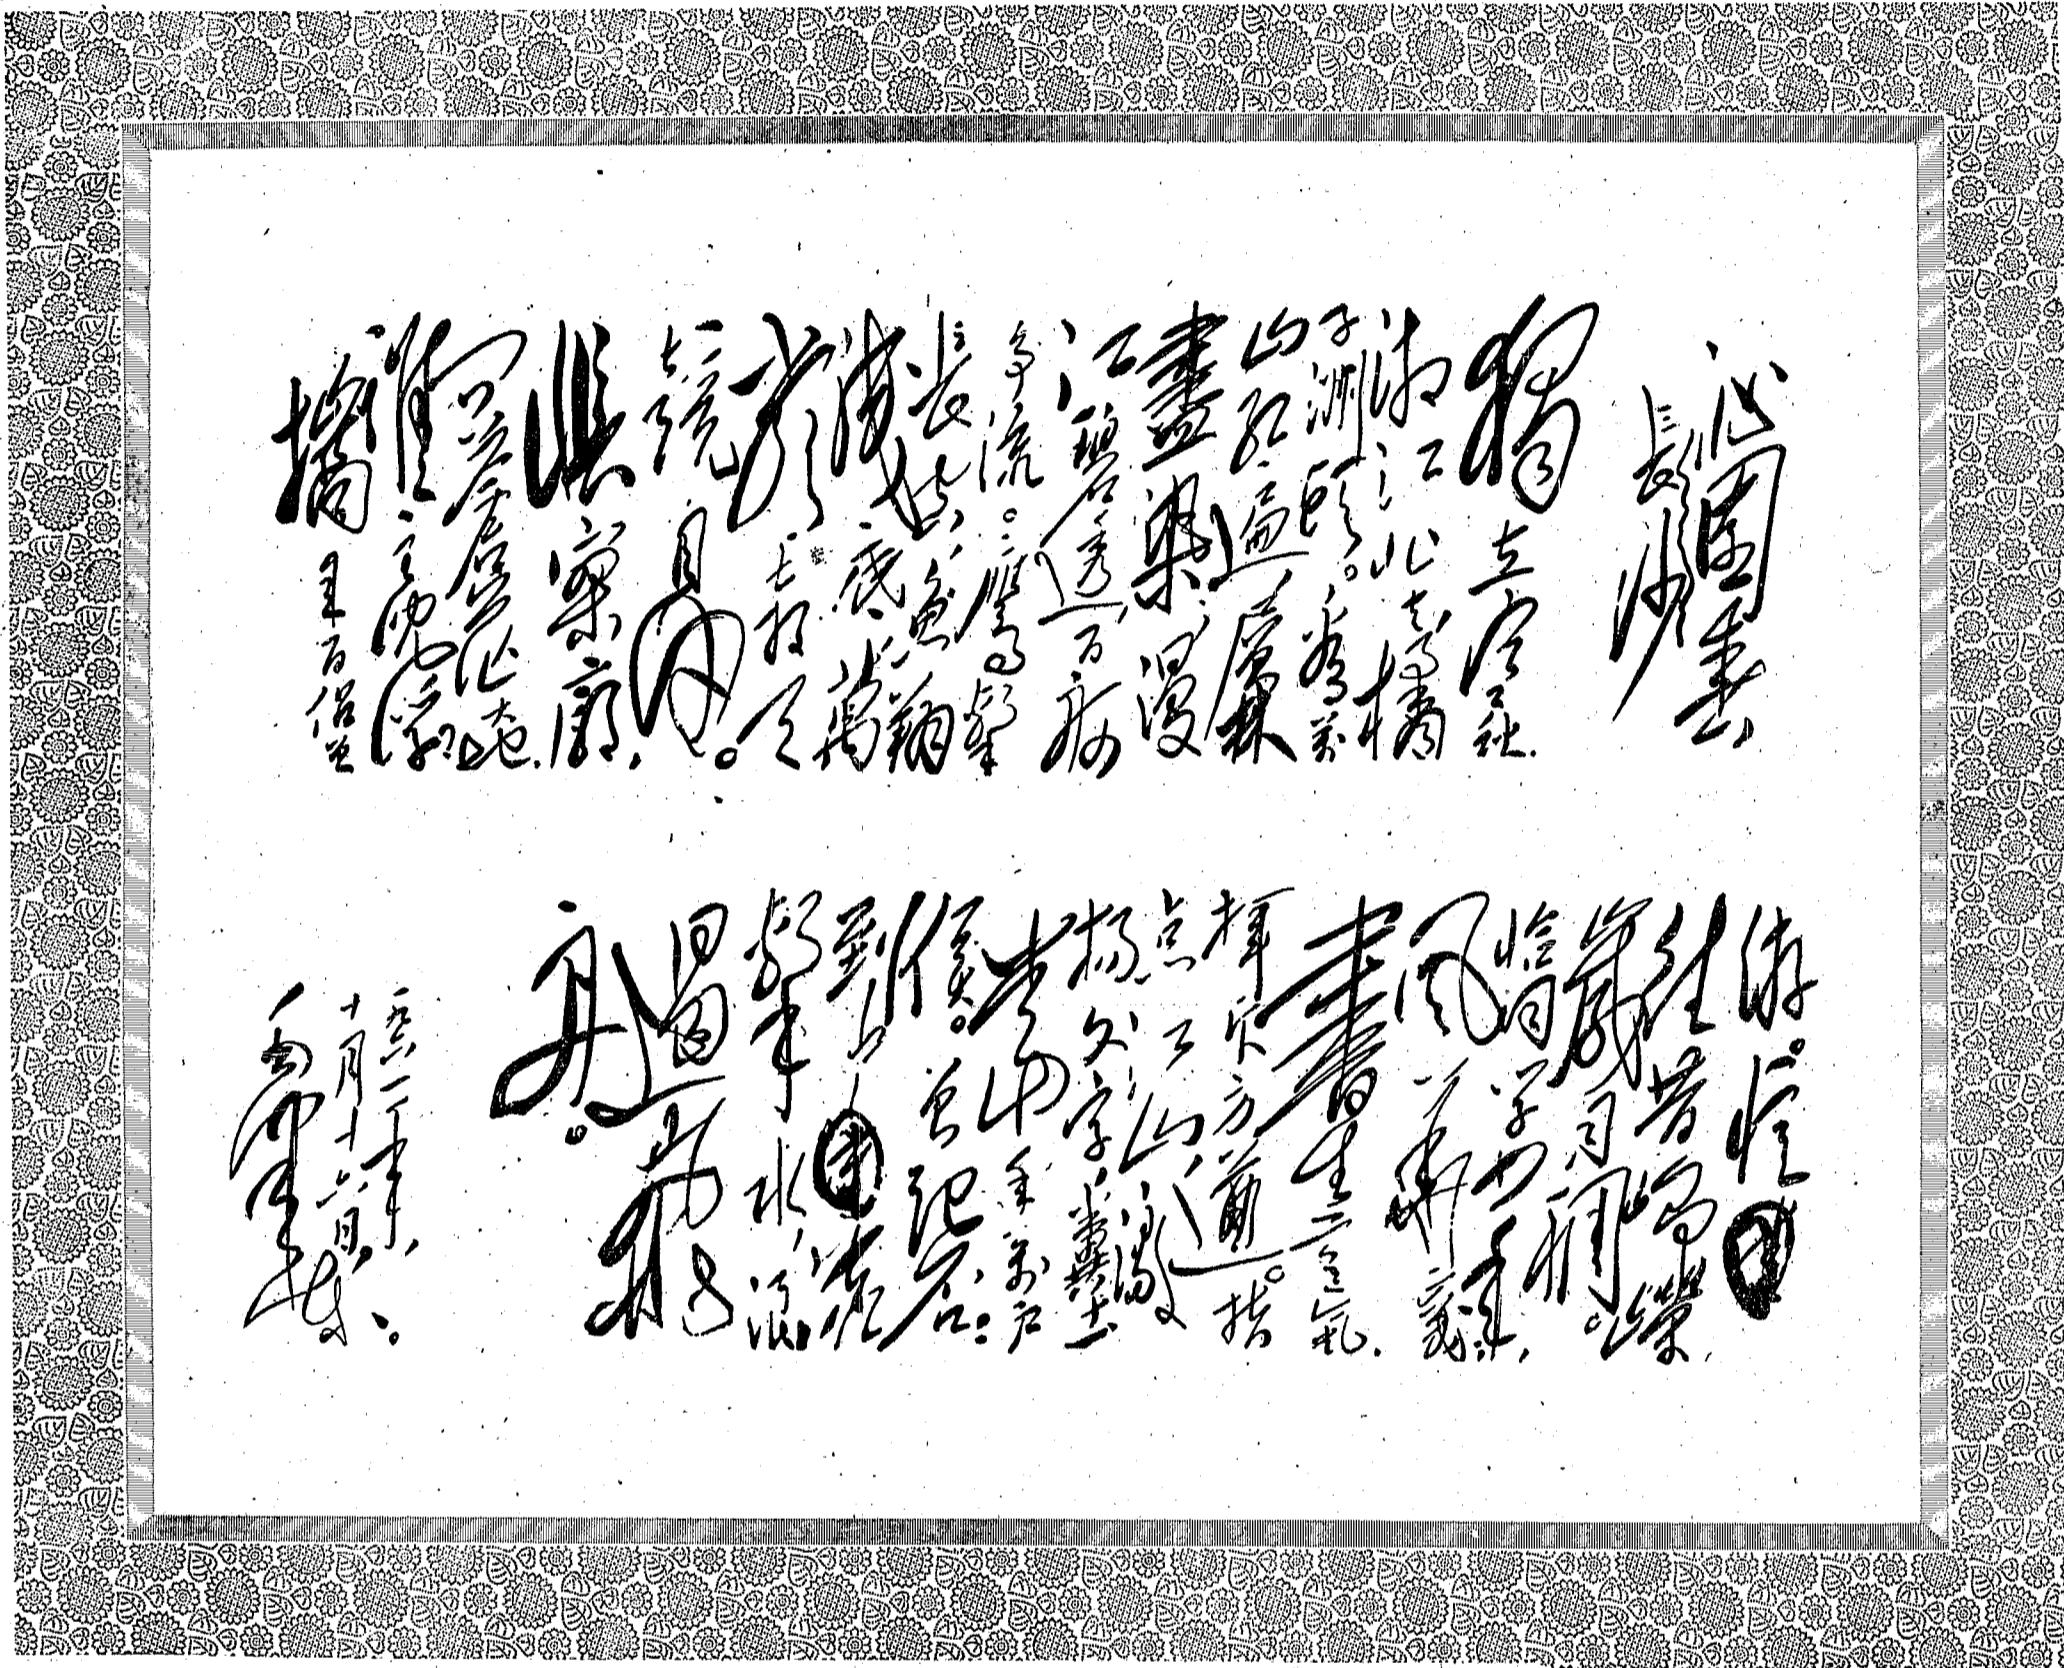 沁園春
長沙
獨立寒秋.
湘江北去橘
子洲頭。看萬
山紅遍層林
盡染,漫
江碧透百舸
爭流。鷹擊
長空,魚翔
淺底,萬
類霜天
競自由。
悵寥廓,
問蒼茫大地.
誰主沉浮
攜來百侶曾
游。憶
往昔崢嶸
歲月稠。
恰同學少年,
風華正茂
書生意氣.
揮斥方遒。指
点江山,激
揚文字,糞土
當年萬户
侯。曾記否:
到中流
擊水,浪
遏飛
舟。
一九六一年,
十月十六日。
毛澤東。